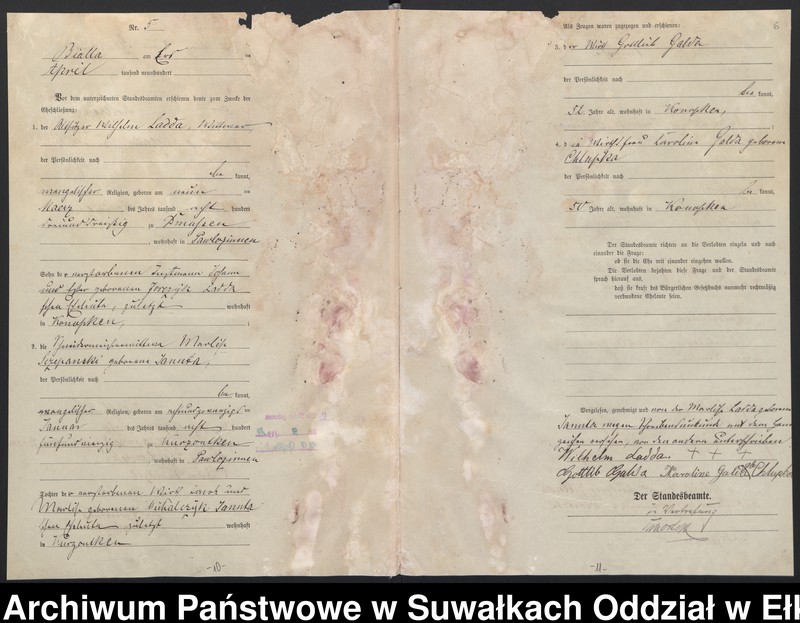 Nr. 5
Bialla am
April tausend neunhundert
Vor dem unterzeichneten Standesbeamten erschienen heute zum Zwecke der
Eheschließung:
1. der Wilhelm Ladda, Wittwer
der Persönlichkeit nach
be kannt,
evangelischer Religion, geboren am neun
Maerz des Jahres tausend acht hundert
dreiunddreißig zu Dmussen
, wohnhaft in Pawlozinnen
Sohn der verstorbenen Instmann Johann
und geborenen Ladda
schen Eheleute, zuletzt wohnhaft
in Konopken;
2. die Schneidermeisterwittwe Marlise
Szepanski geborene Jannta,
der Persönlichkeit nach
be kannt,
evangelischer Religion, geboren am
Januar des Jahres tausend acht hundert
fünfundvierzig zu Kurzontken
, wohnhaft in Pawlozinnen
Tochter der verstorbenen Wirth und
Marlise geborenen Michalczyk Jannta
schen Eheleute zuletzt wohnhaft
in Kurzontken
-10-
6
Als Zeugen waren zugezogen und erschienen:
3. der Wirth Gottlieb Galda
der Persönlichkeit nach
be kannt,
52 Jahre alt, wohnhaft in Konopken;
4. die Wirthsfrau Karoline Galda geborene
Chlupka
der Persönlichkeit nach
be kannt,
50 Jahre alt, wohnhaft in Konopken
Der Standesbeamte richtete an die Verlobten einzeln und nach
einander die Frage:
ob sie die Ehe mit einander eingehen wollen.
Die Verlobten bejahten diese Frage und der Standesbeamte
sprach hierauf aus,
daß sie kraft des Bürgerlichen Gesetzbuchs nunmehr rechtmäßig
verbundene Eheleute seien.
Vorgelesen, genehmigt und von der Marlise Ladda geborenen
Jannta wegen Schreibensunkunde mit dem Hand
zeichen versehen, von den anderen unterschrieben
Wilhelm Ladda. + + +
Gottlib Galda Karoline Galda geb Chlupka
Der Standesbeamte.
in Vertretung
-11-
Archiwum Państwowe w Suwałkach Oddział w Ełk